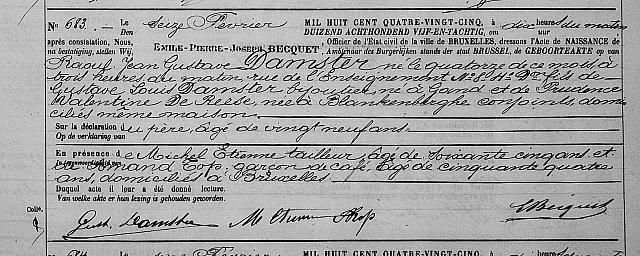 No 683. Le Den Seize Février MIL HUIT CENT QUATRE-VINGT-CINQ, à dix heures du matin
DUIZEND ACHTHONDERD VIJF-EN-TACHTIG, om
après constatation, Nous, EMILE-PIERRE-JOSEPH BECQUET, Officier de l'Etat civil de la ville de BRUXELLES, dressons l'Acte de NAISSANCE de
na bestatiging, stellen Wij, Ambtenaar des Burgerlijken stands der stad BRUSSEL, de GEBOORTEAKTE op van
Raoul Jean Gustave Damster né le quatorze de ce mois à
trois heures du matin, rue de l'Enseignement No fils de
Gustave Louis Damster bijoutier, né à Gand et de Prudence
Valentine De Reese, née à Blankenberghe conjoints, domi
ciliés même maison.
Sur la déclaration du père, âgé de vingt neuf ans.
Op de verklaring van
En présence de Michel Etienne tailleur, âgé de soixante cinq ans et
In tegenwoordigheid van
de Armand garçon de café, âgé de cinquante quatre
ans, domiciliés à Bruxelles
Duquel acte il leur a été donné lecture.
Van welke akte er hun lezing is gehouden geworden.
Collé.
Gust. Damster M Etienne EBecquet
No 684 Le Seize Février MIL HUIT CENT QUATRE-VINGT-CINQ, à heures du